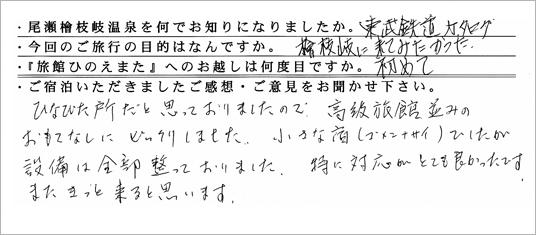 ・尾瀬檜枝岐温泉を何でお知りになりましたか。東武鉄道カタログ
・今回のご旅行の目的はなんですか。檜枝岐に来てみたかった.
・『旅館ひのえまた』へのお越しは何度目ですか。初めて
・ご宿泊いただきましたご感想・ご意見をお聞かせ下さい。
ひなびた所だと思っておりましたので 高級旅館並みの
おもてなしに びっくりしました. 小さな宿(ゴメンナサイ)でしたが
設備は全部整っておりました. 特に対応がとても良かったです
また きっと来ると思います.